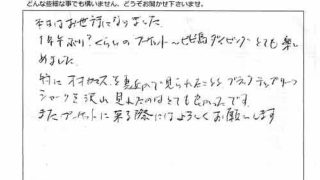 どんな些細な事でも構いません、どうぞお聞かせ下さいませ。
お世話になりました。
1年半ぶり?くらいのプーケット〜ピピ島ダイビングとても楽しめました。
特に オオセ を 見られたことと ブラックチップリーフ
シャークを沢山見れたのはとても良かったです。
またプーケットに来る際にはよろしくお願いします